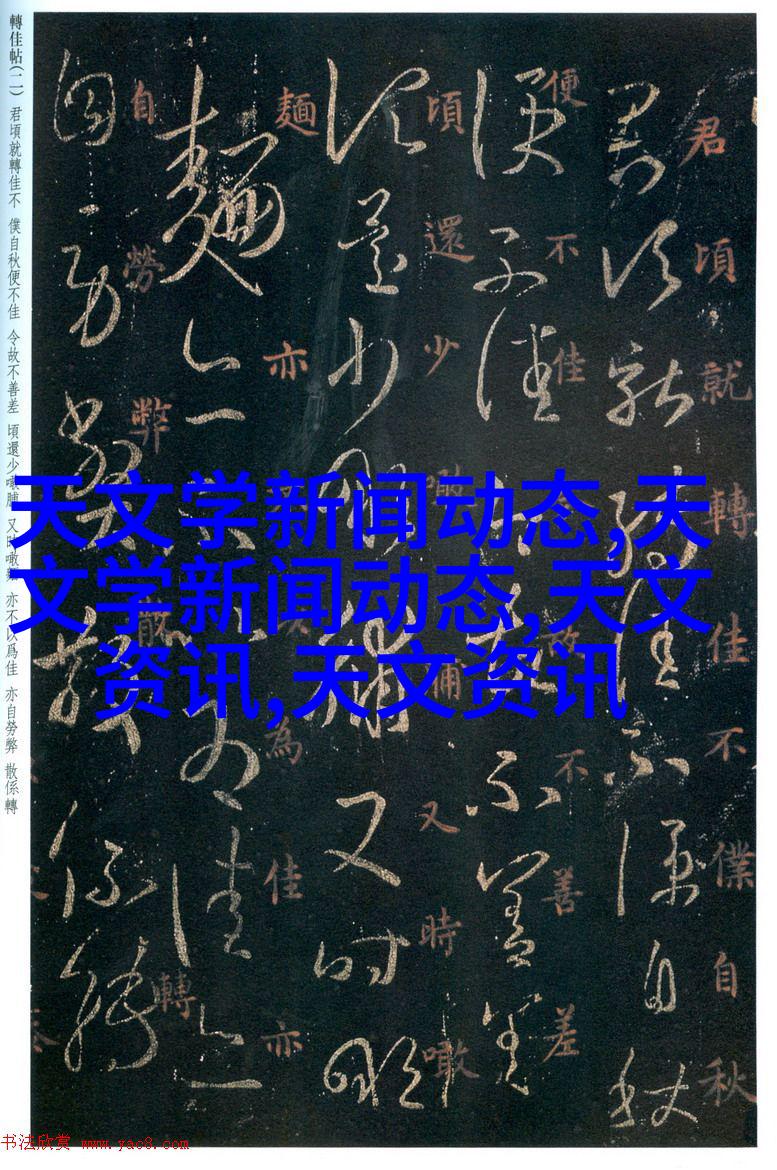 轉佳帖(二) 君頃就轉佳不 僕自秋便不佳 令故不善差 頃還少噉脯 又時噉麵 亦不以爲佳 亦自勞弊 散係轉
君頃就轉佳不僕自秋
便不佳 故不善差
頃還少噉 又時噉
麵亦 為佳亦
自勞弊散 轉
天文学新闻动态,天
文学新闻动态,天文
资讯,天文资讯
书法欣赏 www.yac8.com